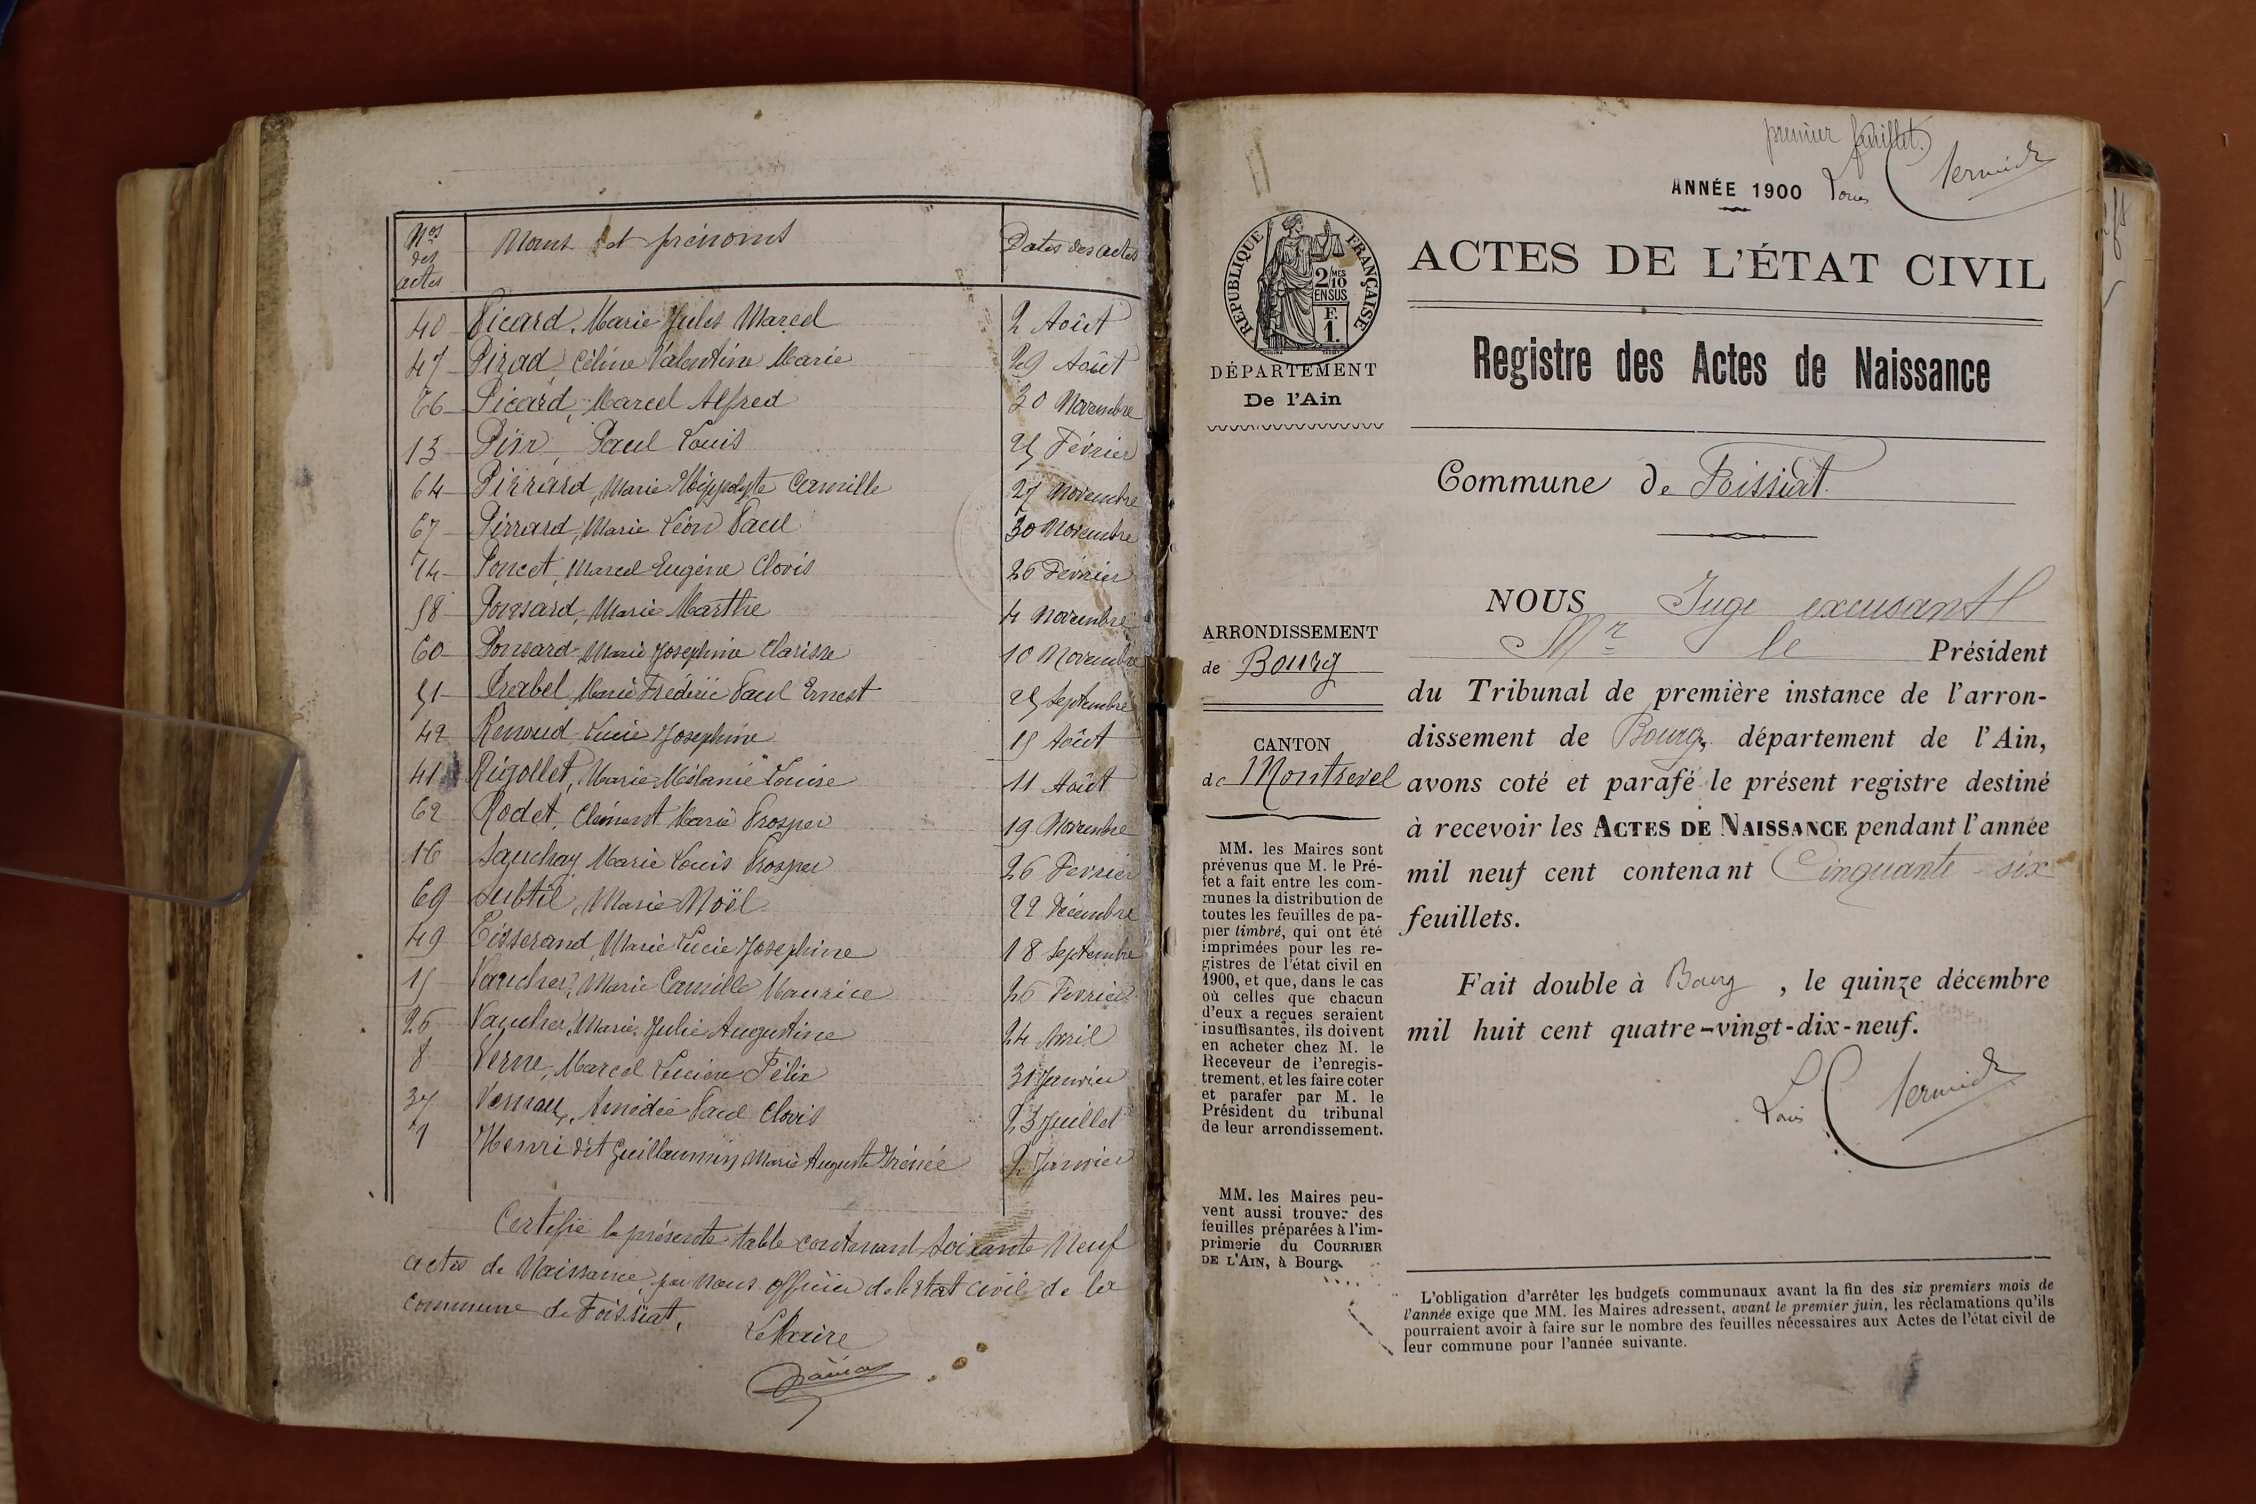 Nos des actes Noms et prénoms Dates des actes
40 Picard, Marie Jules Marcel 2 Août
47 Pirad Céline Valentine Marie 29 Août
66 Picard, Marcel Alfred 30 Novembre
13 Paul Louis 25 Février
64 Pirrard, Marie Hippolyte Camille 27 Novembre
67 Pirrard, Marie Léon Paul 30 Novembre
14 Poncet, Marcel Eugène Clovis 26 Février
58 Ponsard, Marie Marthe 4 Novembre
60 Ponsard, Marie Josephine Clarisse 10 Novembre
51 Prabel, Marie Frédéric Paul Ernest 25 Septembre
42 Renoud Lucie Josephine 15 Août
41 Rigollet, Marie Mélanie Louise 11 Août
62 Rodet, Clément Marie Prosper 19 Novembre
16 Marie Louis Prosper 26 Fevrier
69 Subtil, Marie Noël 22 Décembre
49 Tisserand, Marie Lucie Josephine 18 Septembre
15 Vaucher, Marie Camille Maurice 26 Fevrier
26 Vaucher, Marie Julie Augustine 24 Avril
8 Verne, Marcel Lucien Félix 31 Janvier
37 Amédée Paul Clovis 23 Juillet
1 Henri dit Guillaumin, Marie Auguste Irénée 2 Janvier
Certifié la présente table contenant soixante Neuf
actes de Naissance, par nous officier de l'état civil de la
commune de Foissiat,
Le Maire
premier feuillet.
ANNÉE 1900 Louis
ACTES DE L'ÉTAT CIVIL
RÉPUBLIQUE FRANÇAISE
2/10 MES
EN SUS
F.
1.
DÉPARTEMENT
De l'Ain
Registre des Actes de Naissance
Commune de Foissiat.
ARRONDISSEMENT
de Bourg
CANTON
de Montrevel
MM. les Maires sont
prévenus que M. le Pré-
fet a fait entre les com-
munes la distribution de
toutes les feuilles de pa-
pier timbré, qui ont été
imprimées pour les re-
gistres de l'état civil en
1900, et que, dans le cas
où celles que chacun
d'eux a reçues seraient
insuffisantes, ils doivent
en acheter chez M. le
Receveur de l'enregis-
trement, et les faire coter
et parafer par M. le
Président du tribunal
de leur arrondissement.
MM. les Maires peu-
vent aussi trouver des
feuilles préparées à l'im-
primerie du COURRIER
DE L'AIN, à Bourg.
NOUS Juge excusant
Mr le Président
du Tribunal de première instance de l'arron-
dissement de Bourg, département de l'Ain,
avons coté et parafé le présent registre destiné
à recevoir les ACTES DE NAISSANCE pendant l'année
mil neuf cent contenant Cinquante-six
feuillets.
Fait double à Bourg, le quinze décembre
mil huit cent quatre-vingt-dix-neuf.
Louis
L'obligation d'arrêter les budgets communaux avant la fin des six premiers mois de
l'année exige que MM. les Maires adressent, avant le premier juin, les réclamations qu'ils
pourraient avoir à faire sur le nombre des feuilles nécessaires aux Actes de l'état civil de
leur commune pour l'année suivante.